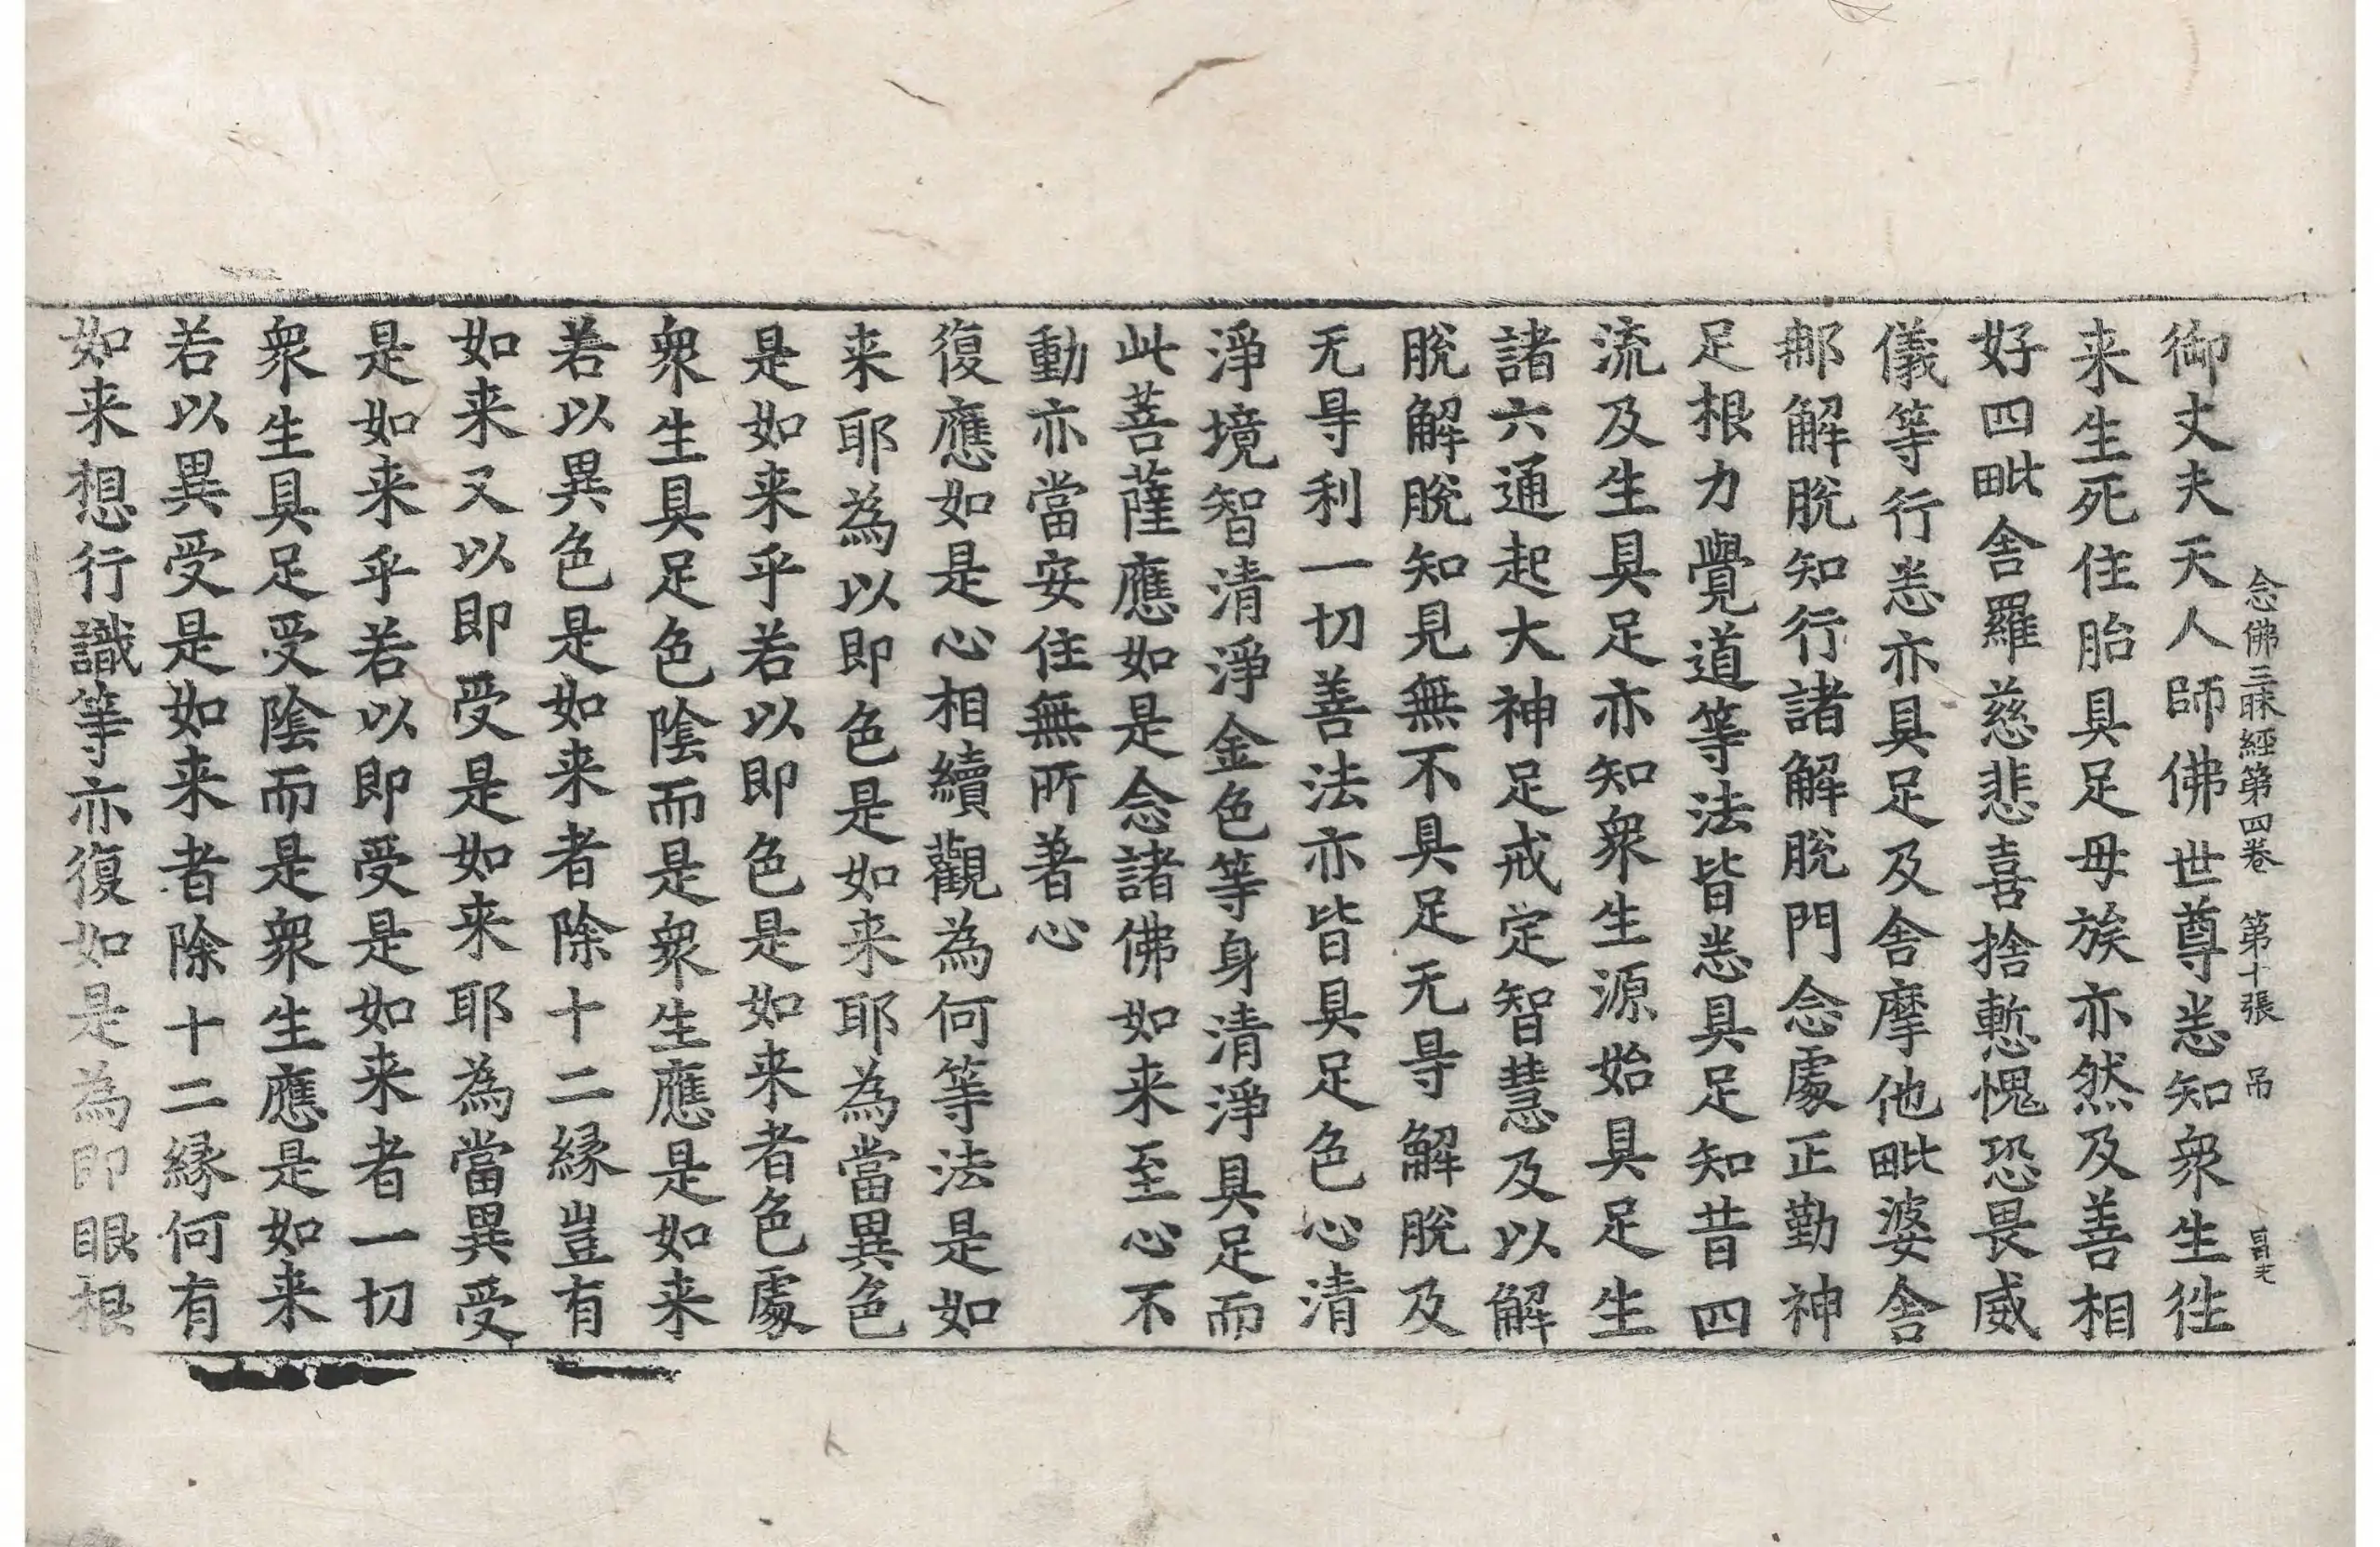 念佛三昧經第四卷 第十張 吊
御丈夫天人師佛世尊悉知衆生徃
来生死住胎具足母族亦然及善相
好四毗舍羅慈悲喜捨慙愧恐畏威
儀等行悉亦具足及舍摩他毗婆舍
那解脫知行諸解脫門念處正勤神
足根力覺道等法皆悉具足知昔四
流及生具足亦知衆生源始具足生
諸六通起大神足戒定智慧及以解
脫解脫知見無不具足无㝵解脫及
无㝵利一切善法亦皆具足色心清
淨境智清淨金色等身清淨具足而
此菩薩應如是念諸佛如来至心不
動亦當安住無所著心
復應如是心相續觀為何等法是如
来耶為以即色是如来耶為當異色
是如来乎若以即色是如来者色處
衆生具足色陰而是衆生應是如来
若以異色是如来者除十二緣豈有
如来又以即受是如来耶為當異受
是如来乎若以即受是如来者一切
衆生具足受陰而是衆生應是如来
若以異受是如来者除十二緣何有
如来想行識等亦復如是為即眼根